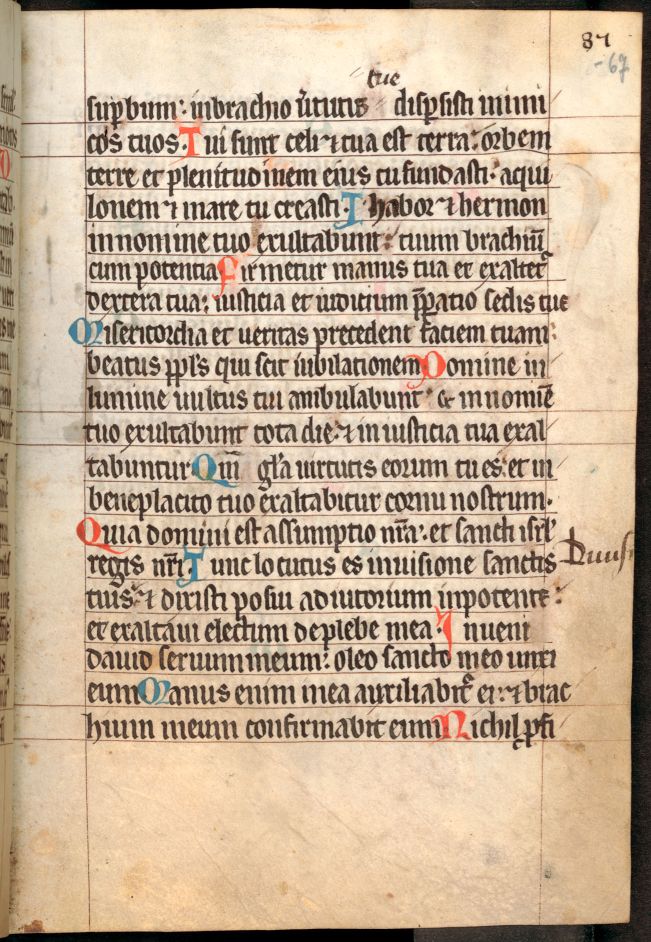 87
67
tue
sup̱bum: in brachio ũtutis disp̱sisti inimi
cos tuos. Tui sunt celi ⁊ tua est terra: orbem
terre et plenitudinem eius tu fundasti. aqui
lonem ⁊ mare tu creasti. Thabor ⁊ hermon
in nomine tuo exultabunt: tuum brachiũ
cum potentia Firmetur manus tua et exaltet᷑
dextera tua: iusticia et iudicium p̄patio sedis tue
Misericordia et ueritas precedent faciem tuam:
beatus ppl̃s qui scit iubilationem Domine in
lumine uultus tui ambulabunt ⁊ in nomĩe
tuo exultabunt tota die: ⁊ in iusticia tua exal
tabuntur Qm̃ gl̃a uirtutis eorum tu es: et in
beneplacito tuo exaltabitur cornu nostrum.
Quia domini est assumptio nr̃a: et sancti isrl̃
regis nr̃i. Tunc locutus es in uisione sanctis
tuis: ⁊ dixisti posui adiutorium in potente:
et exaltaui electum de plebe mea. Inueni
dauid seruum meum: oleo sancto meo unxi
eum Manus enim mea auxiliabit᷑ ei: ⁊ brac
hium meum confirmabit eum Nichil p̱fi